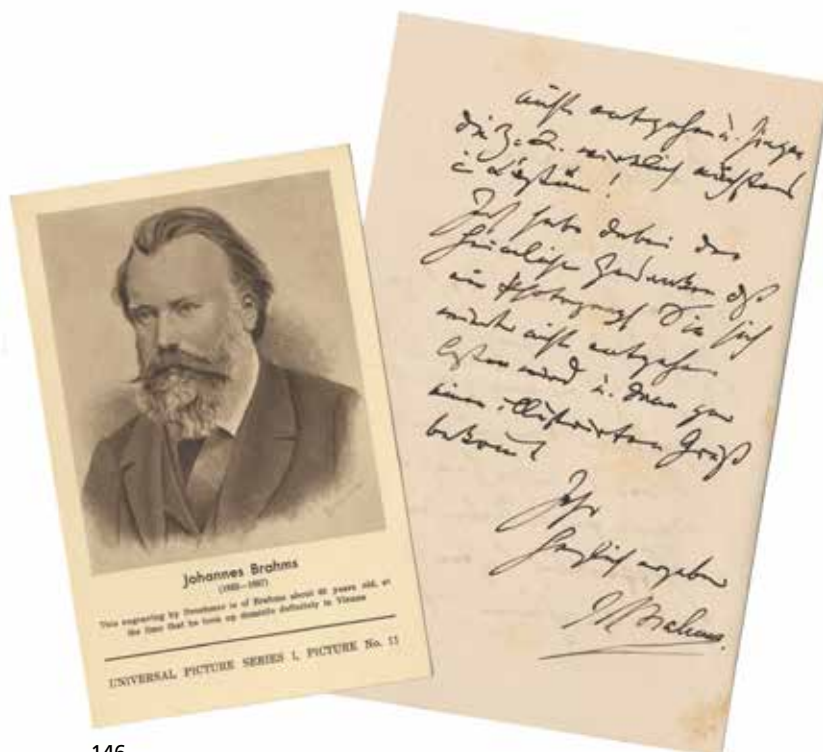 Johannes Brahms
(1833—1897)
This engraving by is of Brahms about years old, at
the time that he took up domicile definitely in Vienna
UNIVERSAL PICTURE SERIES I, PICTURE No. 11
nicht entgehen u.
die z. B. wirklich nächstens
Ich habe dabei den
Gedanken dß
ein Photograph Sie sich
wieder nicht entgehen
lassen wird u. dann gar
einen illustrirten Gruß
bekomt
Ihr
herzlich ergebner
J Brahms.
146